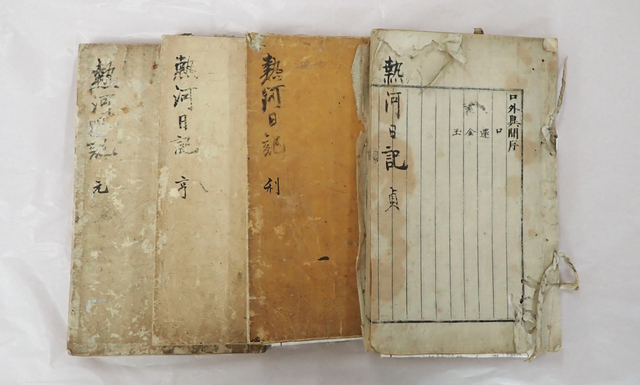 熱河日記
元
熱河日記
亨
熱河日記
利
熱河日記
貞
口外異聞序
口
還
金
玉